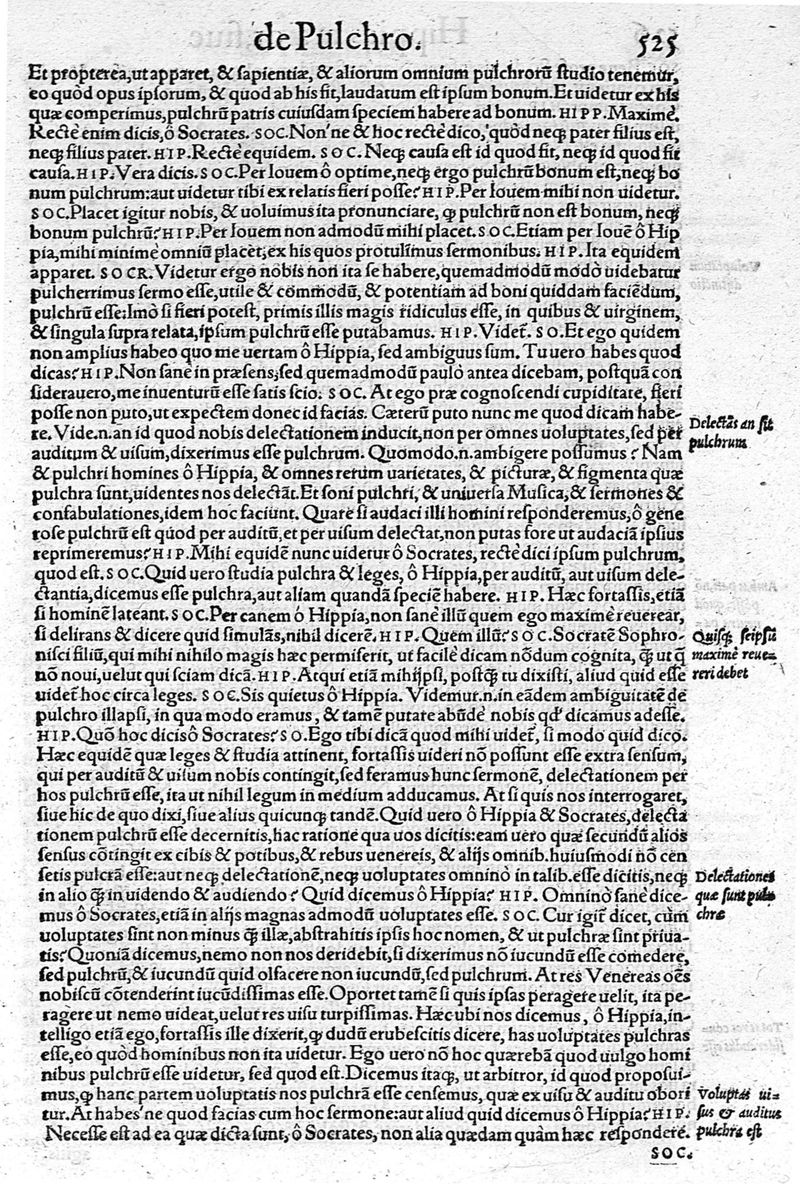 de Pulchro.
525
Et propterea, ut apparet, & sapientiæ, & aliorum omnium pulchrorũ studio tenemur,
eo quòd opus ipsorum, & quod ab his fit, laudatum est ipsum bonum. Et uidetur ex his
quæ comperimus, pulchrũ patris cuiusdam speciem habere ad bonum. HIPP. Maximè.
Rectè enim dicis, ô Socrates. SOC. Non'ne & hoc rectè dico, quòd neq; pater filius est,
neq; filius pater. HIP. Rectè equidem. SOC. Neq; causa est id quod fit, neq; id quod fit
causa. HIP. Vera dicis. SOC. Per Iouem ô optime, neq; ergo pulchrũ bonum est, neq; bo
num pulchrum: aut uidetur tibi ex relatis fieri posse? HIP. Per Iouem mihi non uidetur.
SOC. Placet igitur nobis, & uoluimus ita pronunciare, ꝙ pulchrũ non est bonum, neq;
bonum pulchrũ? HIP. Per Iouem non admodũ mihi placet. SOC. Etiam per Iouẽ ô Hip
pia, mihi minimè omniũ placet, ex his quos protulimus sermonibus. HIP. Ita equidem
apparet. SOCR. Videtur ergo nobis non ita se habere, quemadmodũ modò uidebatur
pulcherrimus sermo esse, utile & commodũ, & potentiam ad boni quiddam faciẽdum,
pulchrũ esse: Imò si fieri potest, primis illis magis ridiculus esse, in quibus & uirginem,
& singula supra relata, ipsum pulchrũ esse putabamus. HIP. Videt᷑. SO. Et ego quidem
non amplius habeo quo me uertam ô Hippia, sed ambiguus sum. Tu uero habes quod
dicas? HIP. Non sanè in præsens, sed quemadmodũ paulò antea dicebam, postquã con
siderauero, me inuenturũ esse satis scio. SOC. At ego præ cognoscendi cupiditate, fieri
posse non puto, ut expectem donec id facias. Cæterũ puto nunc me quod dicam habe-
re. Vide.n. an id quod nobis delectationem inducit, non per omnes uoluptates, sed per
auditum & uisum, dixerimus esse pulchrum. Quomodo.n. ambigere possumus? Nam
& pulchri homines ô Hippia, & omnes rerum uarietates, & picturæ, & figmenta quæ
pulchra sunt, uidentes nos delectãt. Et soni pulchri, & uniuersa Musica, & sermones &
confabulationes, idem hoc faciunt. Quare si audaci illi homini responderemus, ô gene
rose pulchrũ est quod per auditũ, et per uisum delectat, non putas fore ut audaciã ipsius
reprimeremus? HIP. Mihi equidẽ nunc uidetur ô Socrates, rectè dici ipsum pulchrum,
quod est. SOC. Quid uero studia pulchra & leges, ô Hippia, per auditũ, aut uisum dele-
ctantia, dicemus esse pulchra, aut aliam quandã speciẽ habere. HIP. Hæc fortassis, etiã
si hominẽ lateant. SOC. Per canem ô Hippia, non sanè illũ quem ego maximè reuerear,
si delirans & dicere quid simulãs, nihil dicerẽ. HIP. Quem illũ? SOC. Socratẽ Sophro-
nisci filiũ, qui mihi nihilo magis hæc permiserit, ut facilè dicam nõdum cognita, q̃ ut q̃
nõ noui, uelut qui sciam dicã. HIP. Atqui etiã mihijpsi, postq̃ tu dixisti, aliud quid esse
uidet᷑ hoc circa leges. SOC. Sis quietus ô Hippia. Videmur.n. in eãdem ambiguitatẽ de
pulchro illapsi, in qua modo eramus, & tamẽ putare abũdè nobis qd᷑ dicamus adesse.
HIP. Quõ hoc dicis ô Socrates? SO. Ego tibi dicã quod mihi uidet᷑, si modo quid dico.
Hæc equidẽ quæ leges & studia attinent, fortassis uideri nõ possunt esse extra sensum,
qui per auditũ & uisum nobis contingit, sed feramus hunc sermonẽ, delectationem per
hos pulchrũ esse, ita ut nihil legum in medium adducamus. At si quis nos interrogaret,
siue hic de quo dixi, siue alius quicunq; tandẽ. Quid uero ô Hippia & Socrates, delecta
tionem pulchrũ esse decernitis, hac ratione qua uos dicitis: eam uero quæ secundũ alios
sensus cõtingit ex cibis & potibus, & rebus uenereis, & alijs omnib. huiusmodi nõ cen
setis pulcrã esse: aut neq; delectationẽ, neq; uoluptates omnino in talib. esse dicitis, neq;
in alio q̃ in uidendo & audiendo? Quid dicemus ô Hippia? HIP. Omnino sanè dice-
mus ô Socrates, etiã in alijs magnas admodũ uoluptates esse. SOC. Cur igit᷑ dicet, cùm
uoluptates sint non minus q̃ illæ, abstrahitis ipsis hoc nomen, & ut pulchræ sint priua-
tis? Quoniã dicemus, nemo non nos deridebit, si dixerimus nõ iucundũ esse comedere,
sed pulchrũ, & iucundũ quid olfacere non iucundũ, sed pulchrum. At res Venereas oẽs
nobiscũ cõtenderint iucũdissimas esse. Oportet tamẽ si quis ipsas peragere uelit, ita pe-
ragere ut nemo uideat, uelut res uisu turpissimas. Hæc ubi nos dicemus, ô Hippia, in-
telligo etiã ego, fortassis ille dixerit, ꝙ dudũ erubescitis dicere, has uoluptates pulchras
esse, eo quòd hominibus non ita uidetur. Ego uero nõ hoc quærebã quod uulgo homi
nibus pulchrũ esse uidetur, sed quod est. Dicemus itaq;, ut arbitror, id quod proposui-
mus, ꝙ hanc partem uoluptatis nos pulchrã esse censemus, quæ ex uisu & auditu obori
tur. At habes'ne quod facias cum hoc sermone: aut aliud quid dicemus ô Hippia? HIP.
Necesse est ad ea quæ dicta sunt, ô Socrates, non alia quædam quàm hæc respondere.
SOC.
Delectãs an sit
pulchrum
Quisq; seipsũ
maximè reue-
reri debet
Delectationes
quæ sunt pul-
chræ
Voluptas ui-
sus & auditus
pulchra est